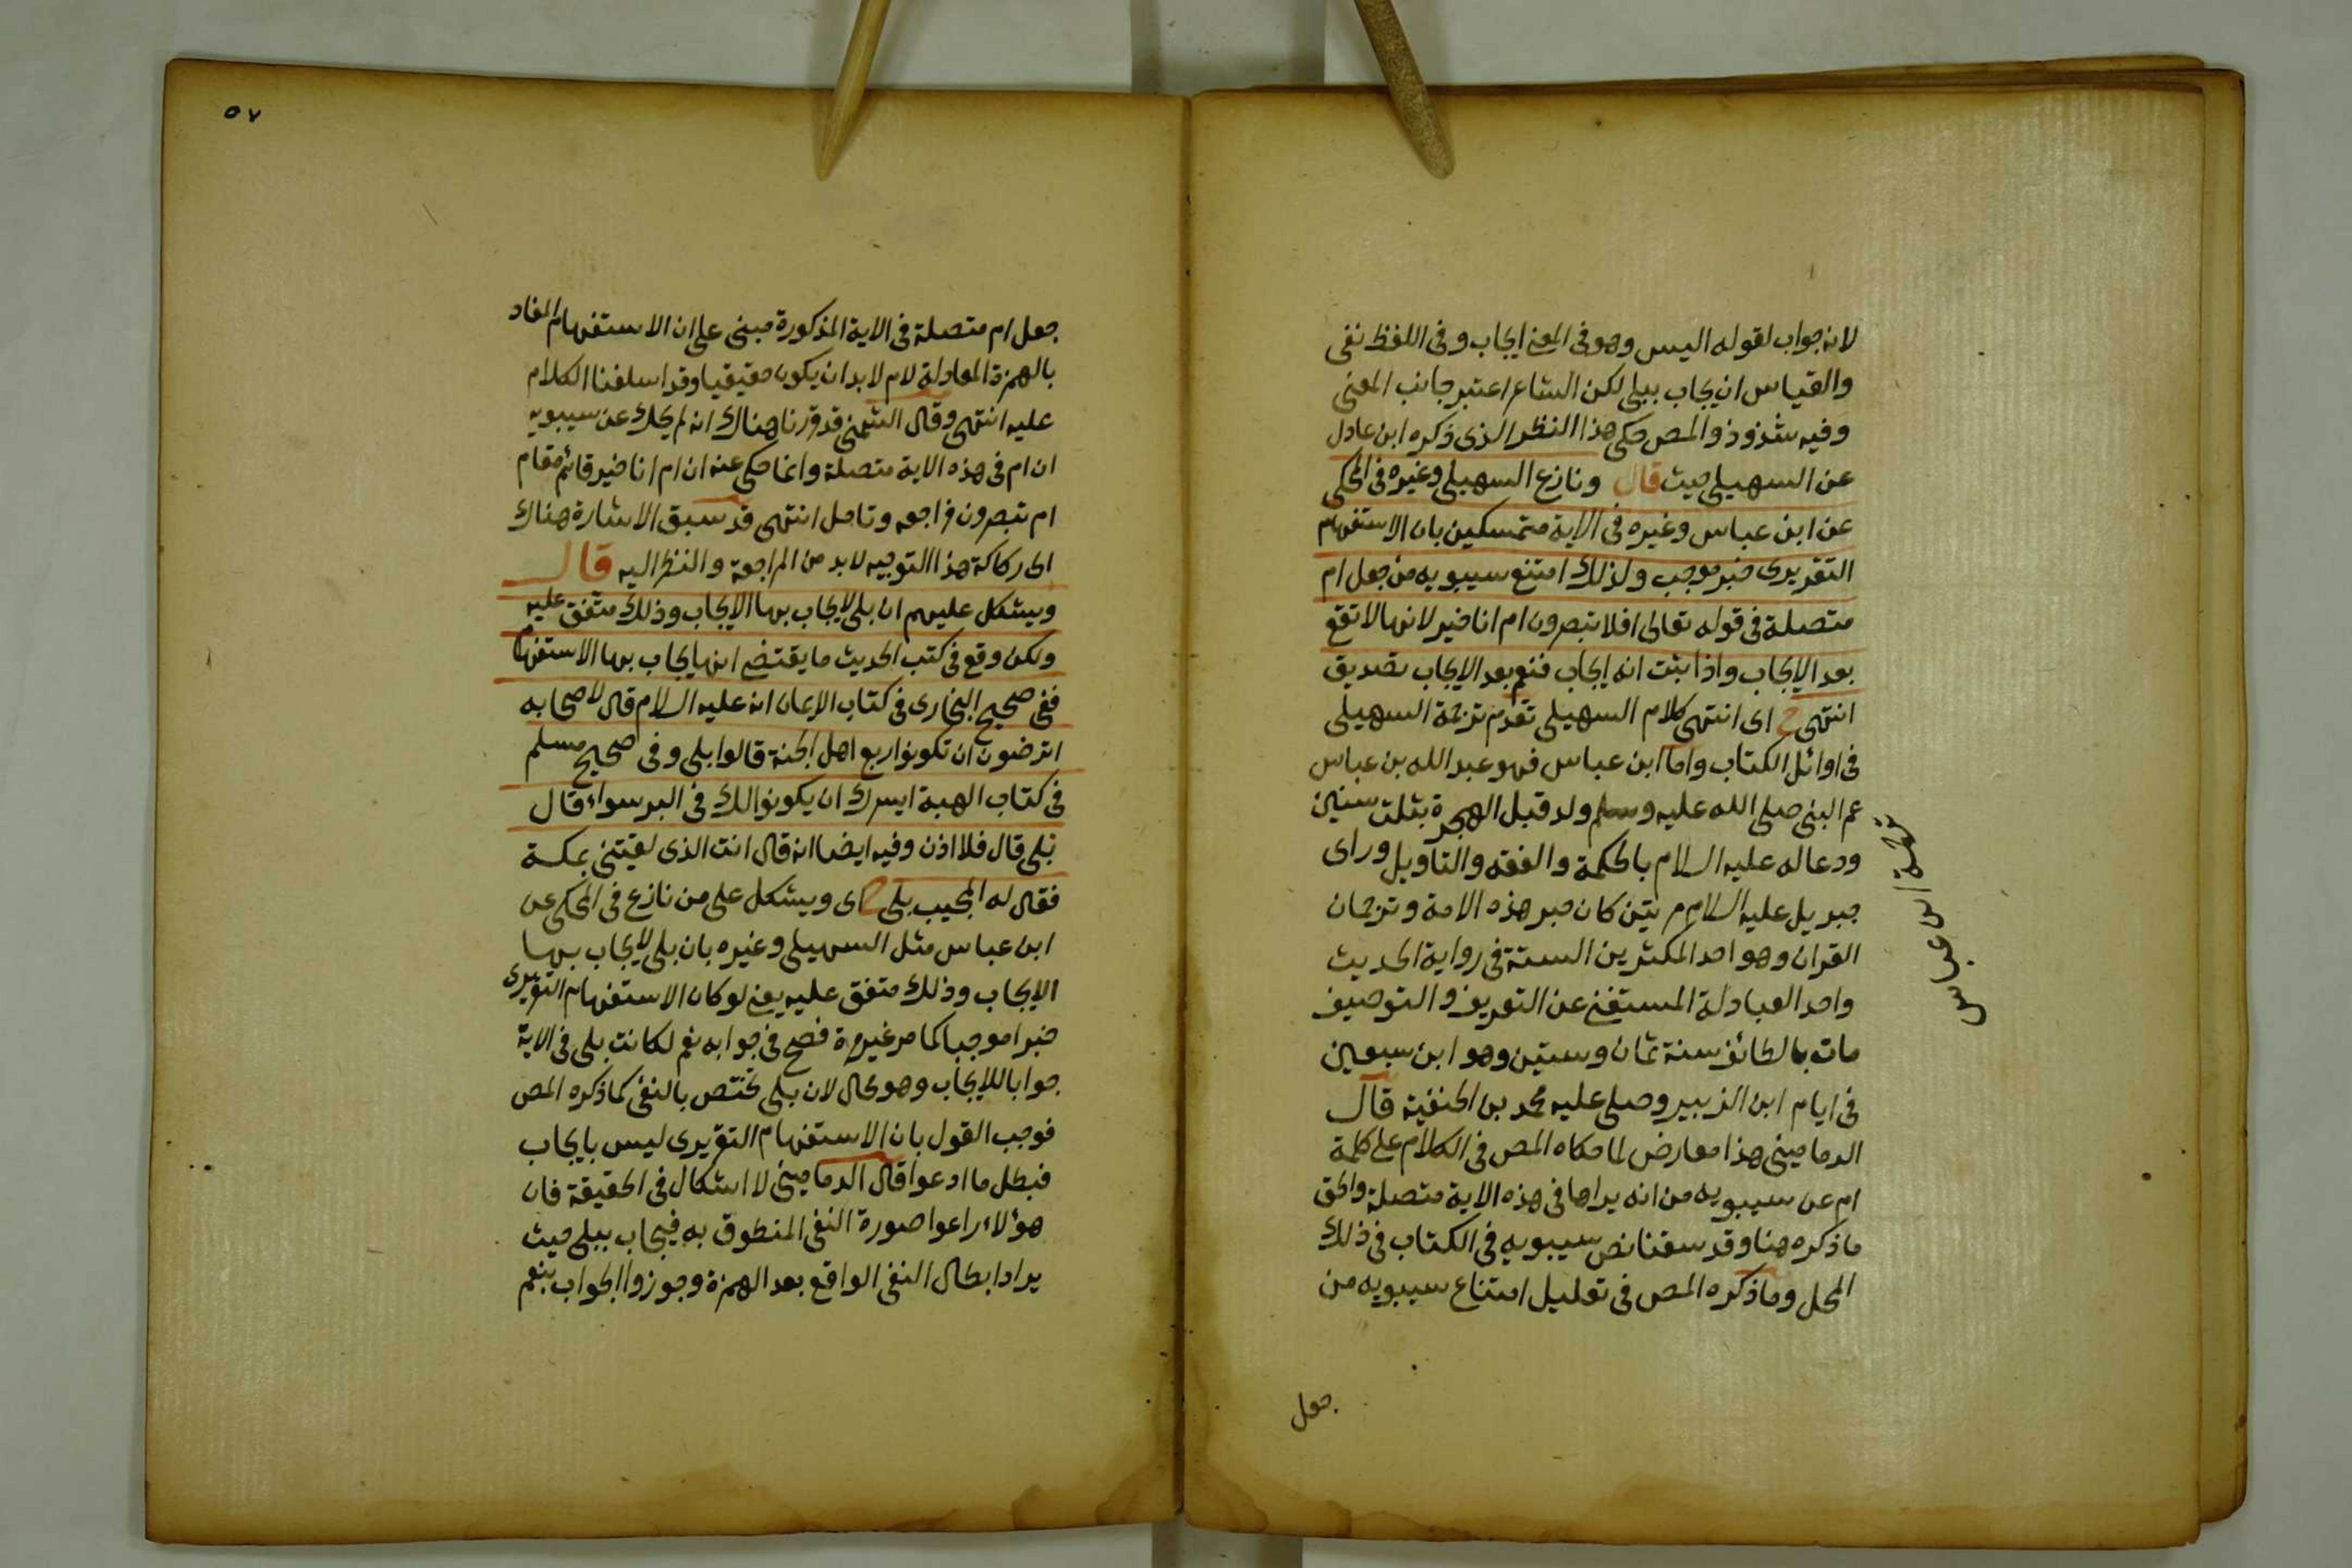 لانه جواب لقوله اليس وهو فى المعنى ايجاب وفى اللفظ نفى
والقياس ان يجاب ببلى لكن الشاعر اعتبر جانب المعنى
وفيه شذوذ والمص حكى هذا النظر الذى ذكره ابن عادل
عن السهيلى حيث قال ونازع السهيلى وغيره فى المحكى
عن ابن عباس وغيره فى الاية متمسكين بان الاستفهام
التقريرى خبر موجب ولذلك امتنع سيبويه من جعل ام
متصلة فى قوله تعالى افلا تبصرون ام انا خير لانها لا تقع
بعد الايجاب واذا ثبت انه ايجاب فنعم بعد الايجاب تصديق
انتهى ح اى انتهى كلام السهيلى تقدم ترجمة السهيلى
فى اوائل الكتاب واما ابن عباس فهو عبد الله بن عباس
عم النبى صلى الله عليه وسلم ولد قبل الهجرة بثلث سنين
ودعا له عليه السلام بالحكمة والفقه والتأويل وراى
جبريل عليه السلام مرتين كان حبر هذه الامة وترجمان
القران وهو احد المكثرين الستة فى رواية الحديث
واحد العبادلة المستغنى عن التعريف والتوصيف
مات بالطائف سنة ثمان وستين وهو ابن سبعين
فى ايام ابن الزبير وصلى عليه محمد بن الحنفية قال
الدمامينى هذا معارض لما حكاه المص فى الكلام على كلمة
ام عن سيبويه من انه يراها فى هذه الاية متصلة والحق
ما ذكره هنا وقد سقنا نص سيبويه فى الكتاب فى ذلك
المحل وما ذكره المص فى تعليل امتناع سيبويه من
جعل
ابن عباس
٥٧
جعل ام متصلة فى الاية المذكورة مبنى على ان الاستفهام المفاد
بالهمزة المعادلة لام لابد ان يكون حقيقيا وقد اسلفنا الكلام
عليه انتهى وقال الشمنى قد قررنا هناك انه لم يحك عن سيبويه
ان ام فى هذه الاية متصلة وانما حكى عنه ان ام انا خير قائم مقام
ام تبصرون فراجعه وتامل انتهى قد سبق الاشارة هناك
الى ركاكة هذا التوجيه لابد من المراجعة والنظر اليه قال
ويشكل عليهم ان بلى لا يجاب بها الايجاب وذلك متفق عليه
ولكن وقع فى كتب الحديث ما يقتضى انها يجاب بها الاستفهام
ففى صحيح البخارى فى كتاب الايمان انه عليه السلام قال لاصحابه
اترضون ان تكونوا ربع اهل الجنة قالوا بلى وفى صحيح مسلم
فى كتاب الهبة ايسرك ان يكونوا لك فى البر سواء قال
بلى قال فلا اذن وفيه ايضا انه قال انت الذى لقيتنى بمكة
فقال له المجيب بلى ح اى ويشكل على من نازع فى المحكى عن
ابن عباس مثل السهيلى وغيره بان بلى لا يجاب بها
الايجاب وذلك متفق عليه يعنى لو كان الاستفهام التقريرى
خبرا موجبا كما مر غير مرة فصح فى جوابه نعم لكانت بلى فى الاية
جوابا للايجاب وهو محال لان بلى تختص بالنفى كما ذكره المص
فوجب القول بان الاستفهام التقريرى ليس بايجاب
فبطل ما ادعوا قال الدمامينى لا اشكال فى الحقيقة فان
هؤلاء راعوا صورة النفى المنطوق به فيجاب ببلى حيث
يراد ابطال النفى الواقع بعد الهمزة وجوزوا الجواب بنعم